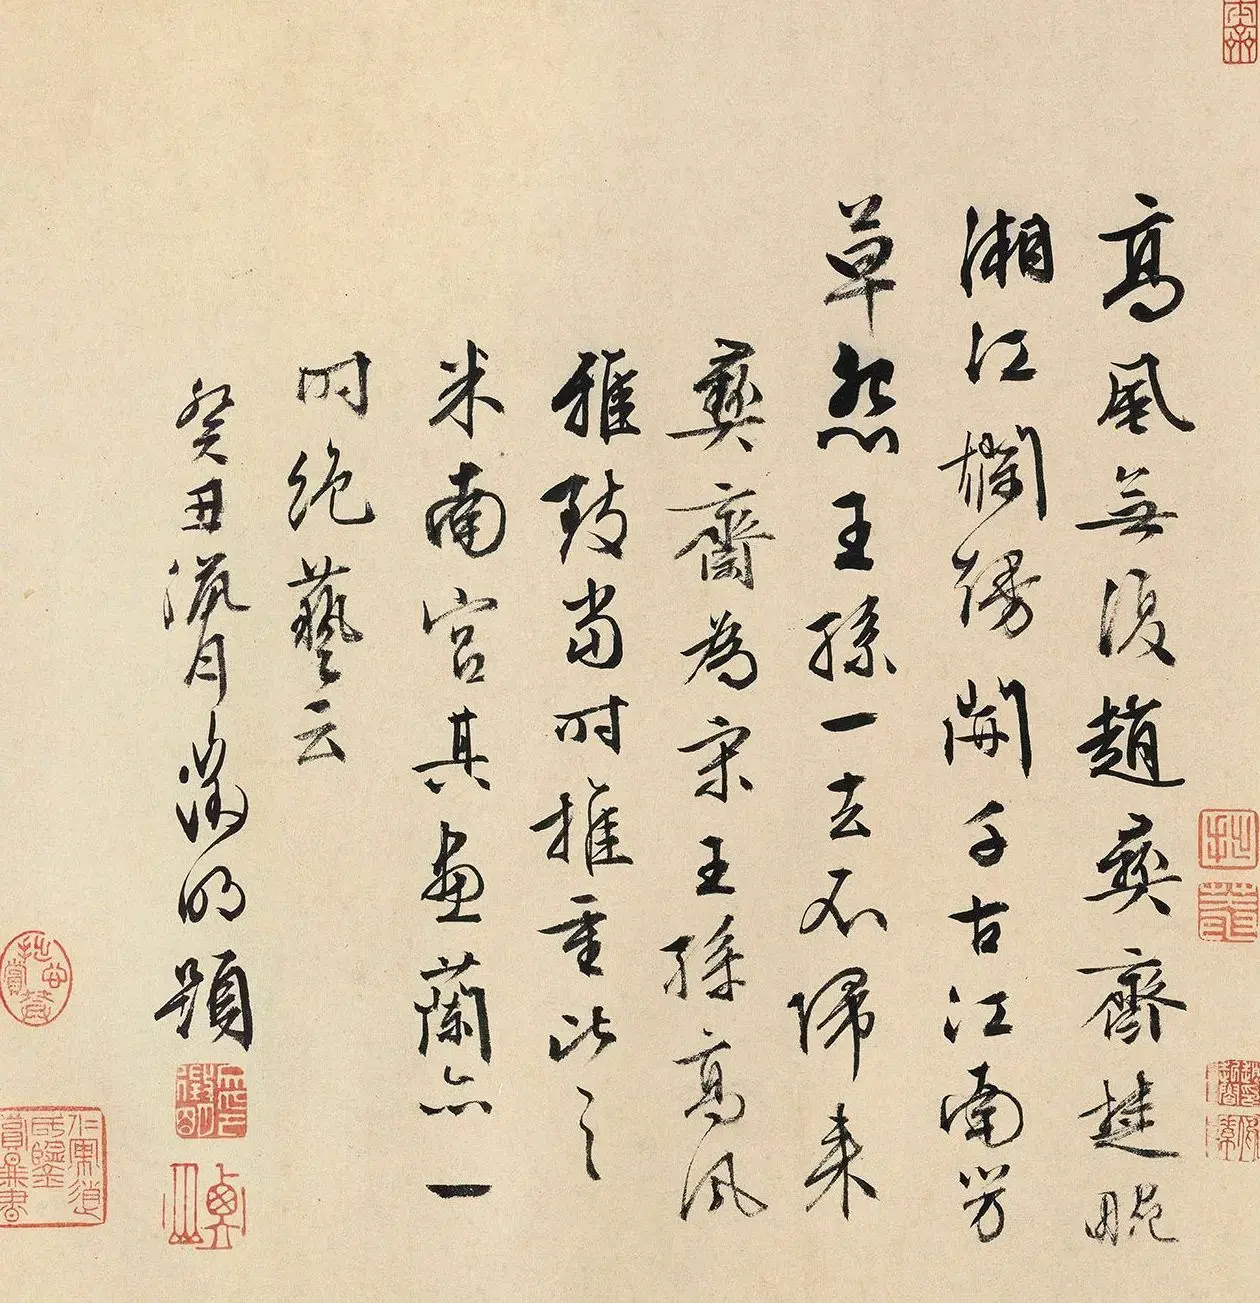 高風無復趙彝齋楚畹
湘江爛熳開千古江南芳
草怨王孫一去不歸来
彝齋為宋王孫高風
雅致當時推重比之
米南宮其畫蘭亦一
時絕藝云
癸丑臘月徵明題
衡山